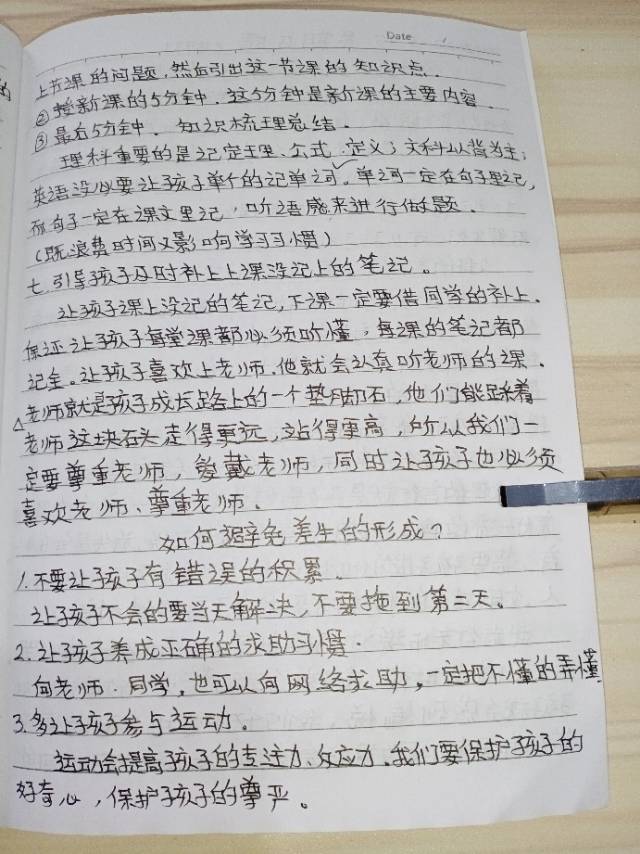 Date
上节课的问题,然后引出这一节课的知识点.
②接新课的5分钟.这5分钟是新课的主要内容.
③最后5分钟.知识梳理总结.
理科重要的是记定理、公式.定义;文科以背为主;
英语没必要让孩子单个的记单词。单词一定在句子里记,
而句子一定在课文里记,听语感来进行做题.
(既浪费时间又影响学习习惯)
七.引导孩子及时补上上课没记上的笔记。
让孩子课上没记的笔记,下课一定要借同学的补上.
保证让孩子每堂课都必须听懂,每课的笔记都
记全.让孩子喜欢上老师.他就会认真听老师的课.
△老师就是孩子成长路上的一个垫脚石,他们能踩着
老师这块石头走得更远,站得更高,所以我们一
定要尊重老师,爱戴老师,同时让孩子也必须
喜欢老师、尊重老师.
如何避免差生的形成?
1.不要让孩子有错误的积累.
让孩子不会的要当天解决,不要拖到第二天。
2.让孩子养成正确的求助习惯.
向老师.同学,也可以向网络求助,一定把不懂的弄懂
3.多让孩子参与运动.
运动会提高孩子的专注力、反应力.我们要保护孩子的
好奇心,保护孩子的尊严。